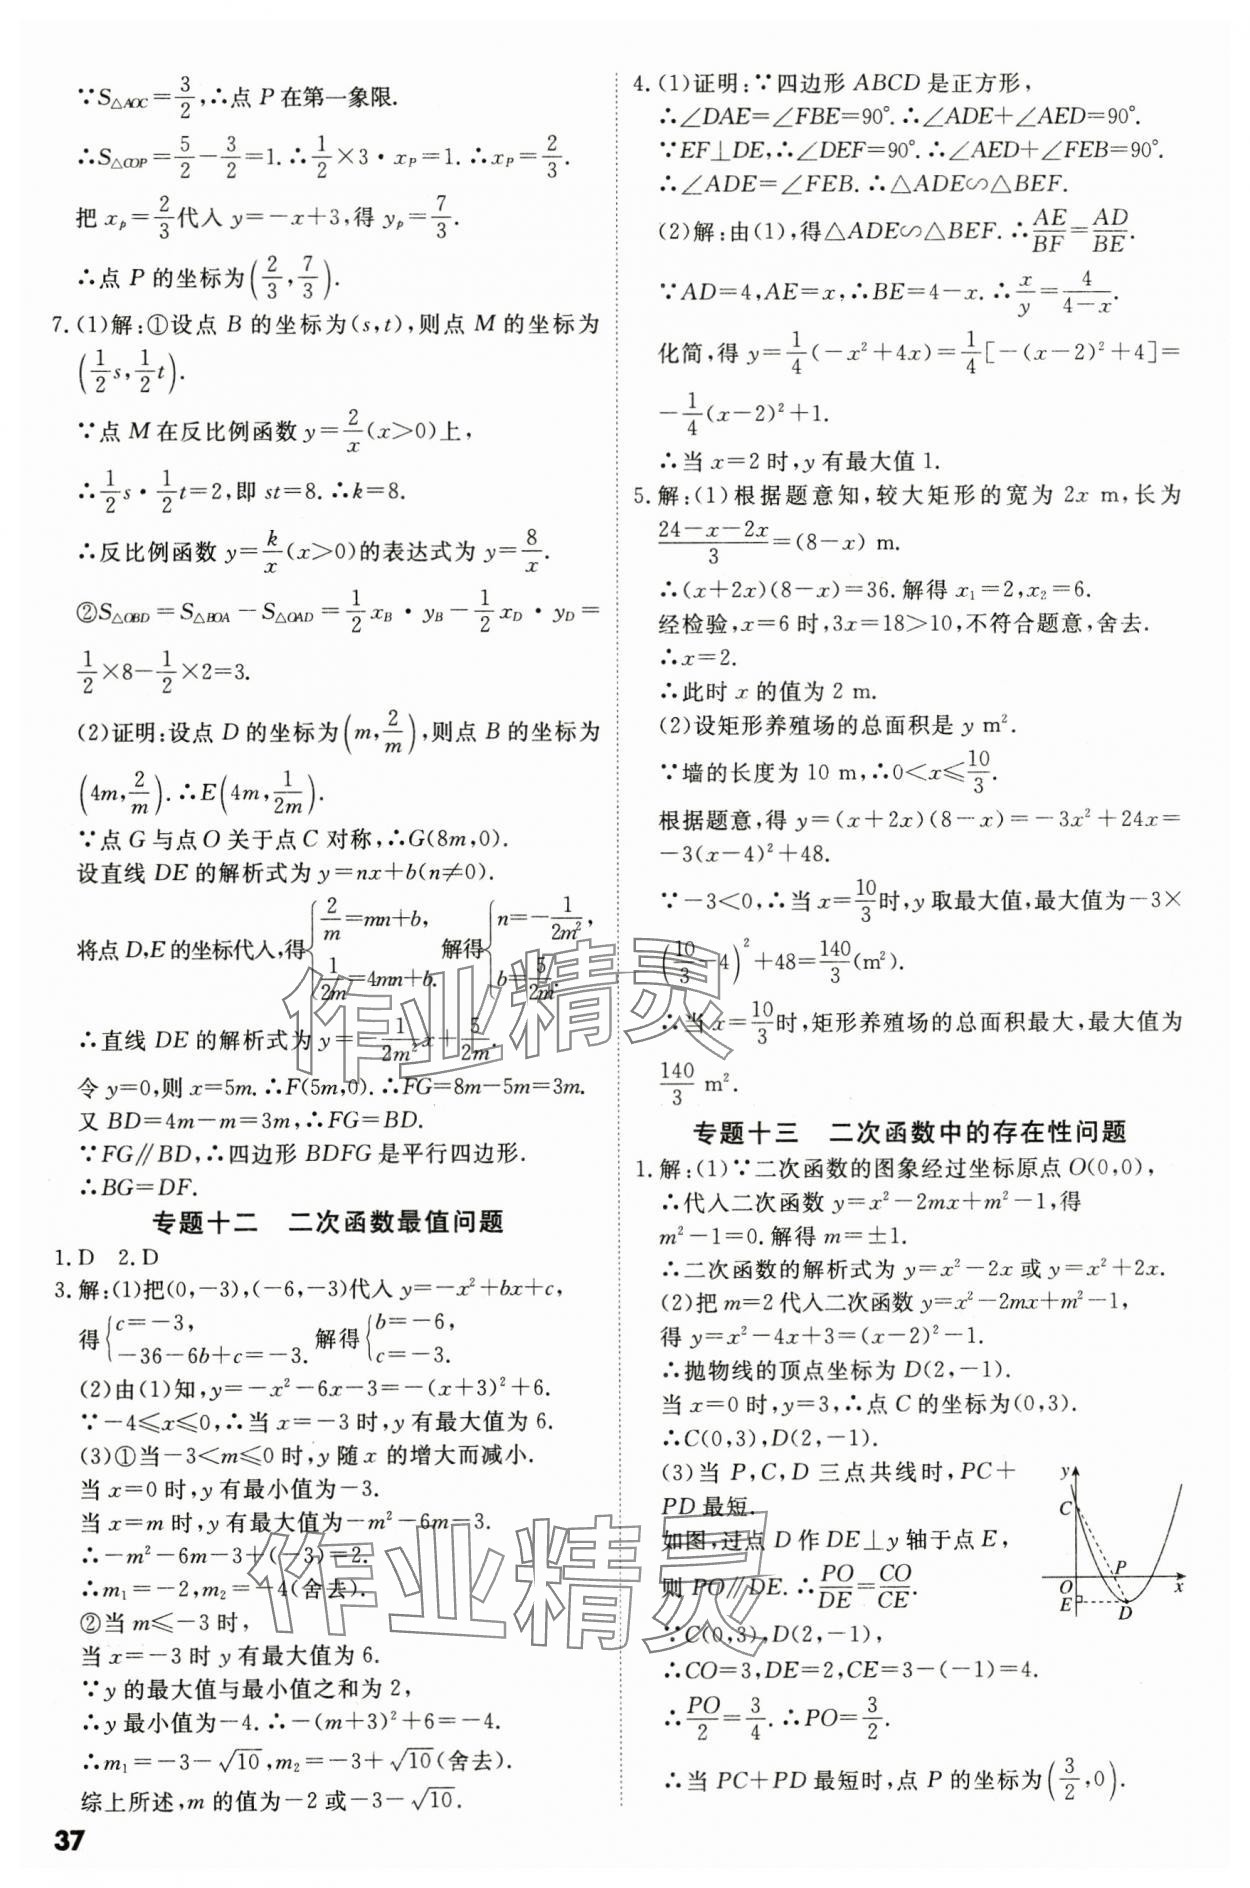 ∵S△AOC=3/2,∴点 P 在第一象限.
∴S△COP=5/2-3/2=1.∴1/2×3·xP=1.∴xP=2/3.
把 xp=2/3代入 y=-x+3,得 yp=7/3.
∴点 P 的坐标为(2/3,7/3).
7.(1)解:①设点 B 的坐标为(s,t),则点 M 的坐标为
(1/2s,1/2t).
∵点 M 在反比例函数 y=2/x(x>0)上,
∴1/2s·1/2t=2,即 st=8.∴k=8.
∴反比例函数 y=k/x(x>0)的表达式为 y=8/x.
②S△OBD=S△BOA-S△OAD=1/2xB·yB-1/2xD·yD=
1/2×8-1/2×2=3.
(2)证明:设点 D 的坐标为(m,2/m),则点 B 的坐标为
(4m,2/m).∴E(4m,1/2m).
∵点 G 与点 O 关于点 C 对称,∴G(8m,0).
设直线 DE 的解析式为 y=nx+b(n≠0).
将点 D,E 的坐标代入,得{2/m=mn+b, 1/2m=4mn+b. 解得{n=-1/2m², b=5/2m.
∴直线 DE 的解析式为 y=-1/2m²x+5/2m.
令 y=0,则 x=5m.∴F(5m,0).∴FG=8m-5m=3m.
又 BD=4m-m=3m,∴FG=BD.
∵FG∥BD,∴四边形 BDFG 是平行四边形.
∴BG=DF.
专题十二 二次函数最值问题
1.D 2.D
3.解:(1)把(0,-3),(-6,-3)代入 y=-x²+bx+c,
得{c=-3, -36-6b+c=-3. 解得{b=-6, c=-3.
(2)由(1)知,y=-x²-6x-3=-(x+3)²+6.
∵-4≤x≤0,∴当 x=-3 时,y 有最大值为 6.
(3)①当-3<m≤0 时,y 随 x 的增大而减小.
当 x=0 时,y 有最小值为-3.
当 x=m 时,y 有最大值为-m²-6m-3.
∴-m²-6m-3+(-3)=2.
∴m1=-2,m2=-4(舍去).
②当 m≤-3 时,
当 x=-3 时 y 有最大值为 6.
∵y 的最大值与最小值之和为 2,
∴y 最小值为-4.∴-(m+3)²+6=-4.
∴m1=-3-√10,m2=-3+√10(舍去).
综上所述,m 的值为-2 或-3-√10.
37
4.(1)证明:∵四边形 ABCD 是正方形,
∴∠DAE=∠FBE=90°.∴∠ADE+∠AED=90°.
∵EF⊥DE,∴∠DEF=90°.∴∠AED+∠FEB=90°.
∴∠ADE=∠FEB.∴△ADE∽△BEF.
(2)解:由(1),得△ADE∽△BEF.∴AE/BF=AD/BE.
∵AD=4,AE=x,∴BE=4-x.∴x/y=4/(4-x).
化简,得 y=1/4(-x²+4x)=1/4[-(x-2)²+4]=
-1/4(x-2)²+1.
∴当 x=2 时,y 有最大值 1.
5.解:(1)根据题意知,较大矩形的宽为 2x m,长为
(24-x-2x)/3=(8-x) m.
∴(x+2x)(8-x)=36.解得 x1=2,x2=6.
经检验,x=6 时,3x=18>10,不符合题意,舍去.
∴x=2.
∴此时 x 的值为 2 m.
(2)设矩形养殖场的总面积是 y m².
∵墙的长度为 10 m,∴0<x≤10/3.
根据题意,得 y=(x+2x)(8-x)=-3x²+24x=
-3(x-4)²+48.
∵-3<0,∴当 x=10/3时,y 取最大值,最大值为-3×
(10/3-4)²+48=140/3(m²).
∴当 x=10/3时,矩形养殖场的总面积最大,最大值为
140/3 m².
专题十三 二次函数中的存在性问题
1.解:(1)∵二次函数的图象经过坐标原点 O(0,0),
∴代入二次函数 y=x²-2mx+m²-1,得
m²-1=0.解得 m=±1.
∴二次函数的解析式为 y=x²-2x 或 y=x²+2x.
(2)把 m=2 代入二次函数 y=x²-2mx+m²-1,
得 y=x²-4x+3=(x-2)²-1.
∴抛物线的顶点坐标为 D(2,-1).
当 x=0 时,y=3,∴点 C 的坐标为(0,3).
∴C(0,3),D(2,-1).
(3)当 P,C,D 三点共线时,PC+
PD 最短.
如图,过点 D 作 DE⊥y 轴于点 E,
则 PO∥DE.∴PO/DE=CO/CE.
∵C(0,3),D(2,-1),
∴CO=3,DE=2,CE=3-(-1)=4.
∴PO/2=3/4.∴PO=3/2.
∴当 PC+PD 最短时,点 P 的坐标为(3/2,0).
y
C
O
P
x
E
D
作业精灵
作业精灵